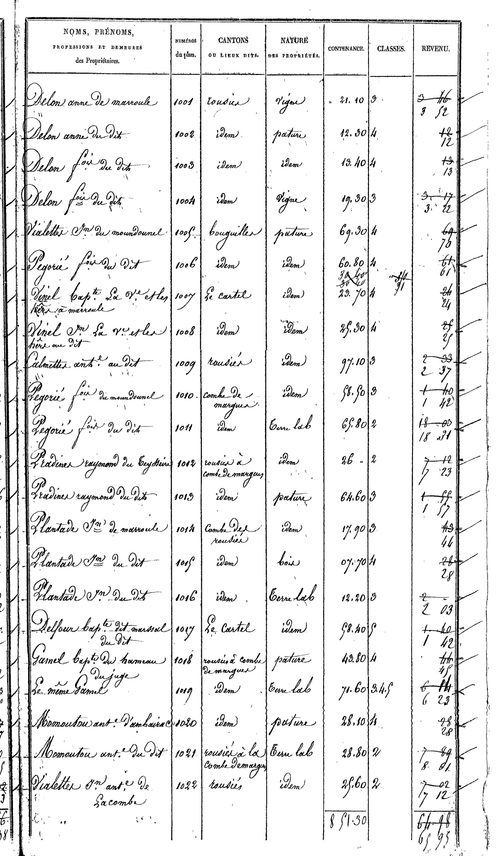 NOMS, PRÉNOMS, PROFESSIONS ET DEMEURES des Propriétaires. NUMÉROS du plan. CANTONS OU LIEUX DITS. NATURE DES PROPRIÉTÉS. CONTENANCE. CLASSES. REVENU.
Delon anne de marroule 1001 rousiés vigne 21.10 3 3 52
Delon anne du dit 1002 idem pature 12.30 4 12
Delon fois du dit 1003 idem idem 13.40 4 13
Delon fois du dit 1004 idem vigne 19.30 3 3. 22
Vialettes Jn du moundounel 1005 bouguilles pature 69.30 4 70
Pegorié fois du dit 1006 idem idem 60.80 4 61
Vinel bapte La Ve et les 1007 Le cartel idem 23.70 4 24
hérs à marroule
Vinel Jn La Ve et les 1008 idem idem 25.30 4 25
hérs au dit
Calmettes ante au dit 1009 rousiés idem 97.10 3 2 37
Pegorié fois de moundounel 1010 combe de idem 58.50 3 1 42
margues
Pegorié fois du dit 1011 idem Terre lab 65.80 2 18
Pradines raymond du 1012 rousiés à idem 26 - 2 7 23
combe de margues
Pradines raymond du dit 1013 idem pature 64.60 3 1 57
Plantade Jn de marroule 1014 Combe des idem 17.90 3
rousties
Plantade Jn du dit 1015 idem bois 07.70 4 28
Plantade Jn du dit 1016 idem Terre lab 12.20 3 2 03
Delfour bapte dit marssal 1017 Le Cartel idem 58.40 5 1 42
du dit
Gamel bapte du hameau 1018 rousiés à combe pature 43.80 4 45
du juge de margues
Le même Gamel 1019 idem Terre lab 71.60 3.4.5 6 23
Momoutou ante d'ambairac 1020 idem pature 28.10 4 28
Momoutou ante du dit 1021 rousiés à la Terre lab 28.80 2 8 01
combe de margues
Vialettes Jn ante de 1022 rousiés idem 25.60 2 7 12
Lacombe
851.30 65 95